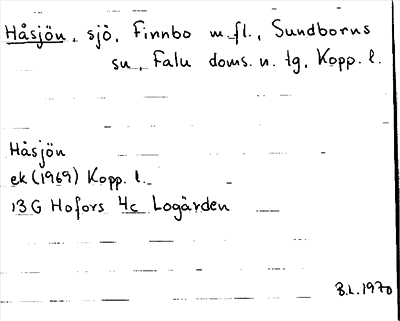 Håsjön, sjö, Finnbo m.fl., Sundborns
sn, Falu doms. n. tg, Kopp. l.
Håsjön
ek (1969) Kopp. l.
13 G Hofors 4c Logärden
B.L. 1970